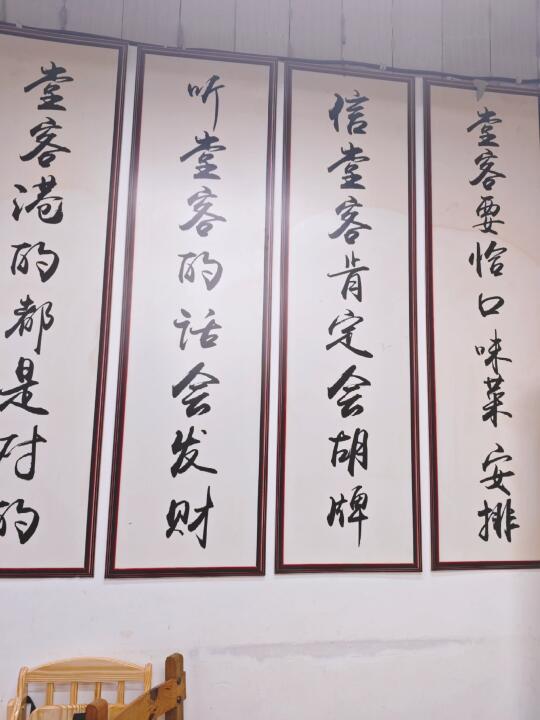 堂客港的都是对的
听堂客的话会发财
信堂客肯定会胡牌
堂客要恰口味菜安排